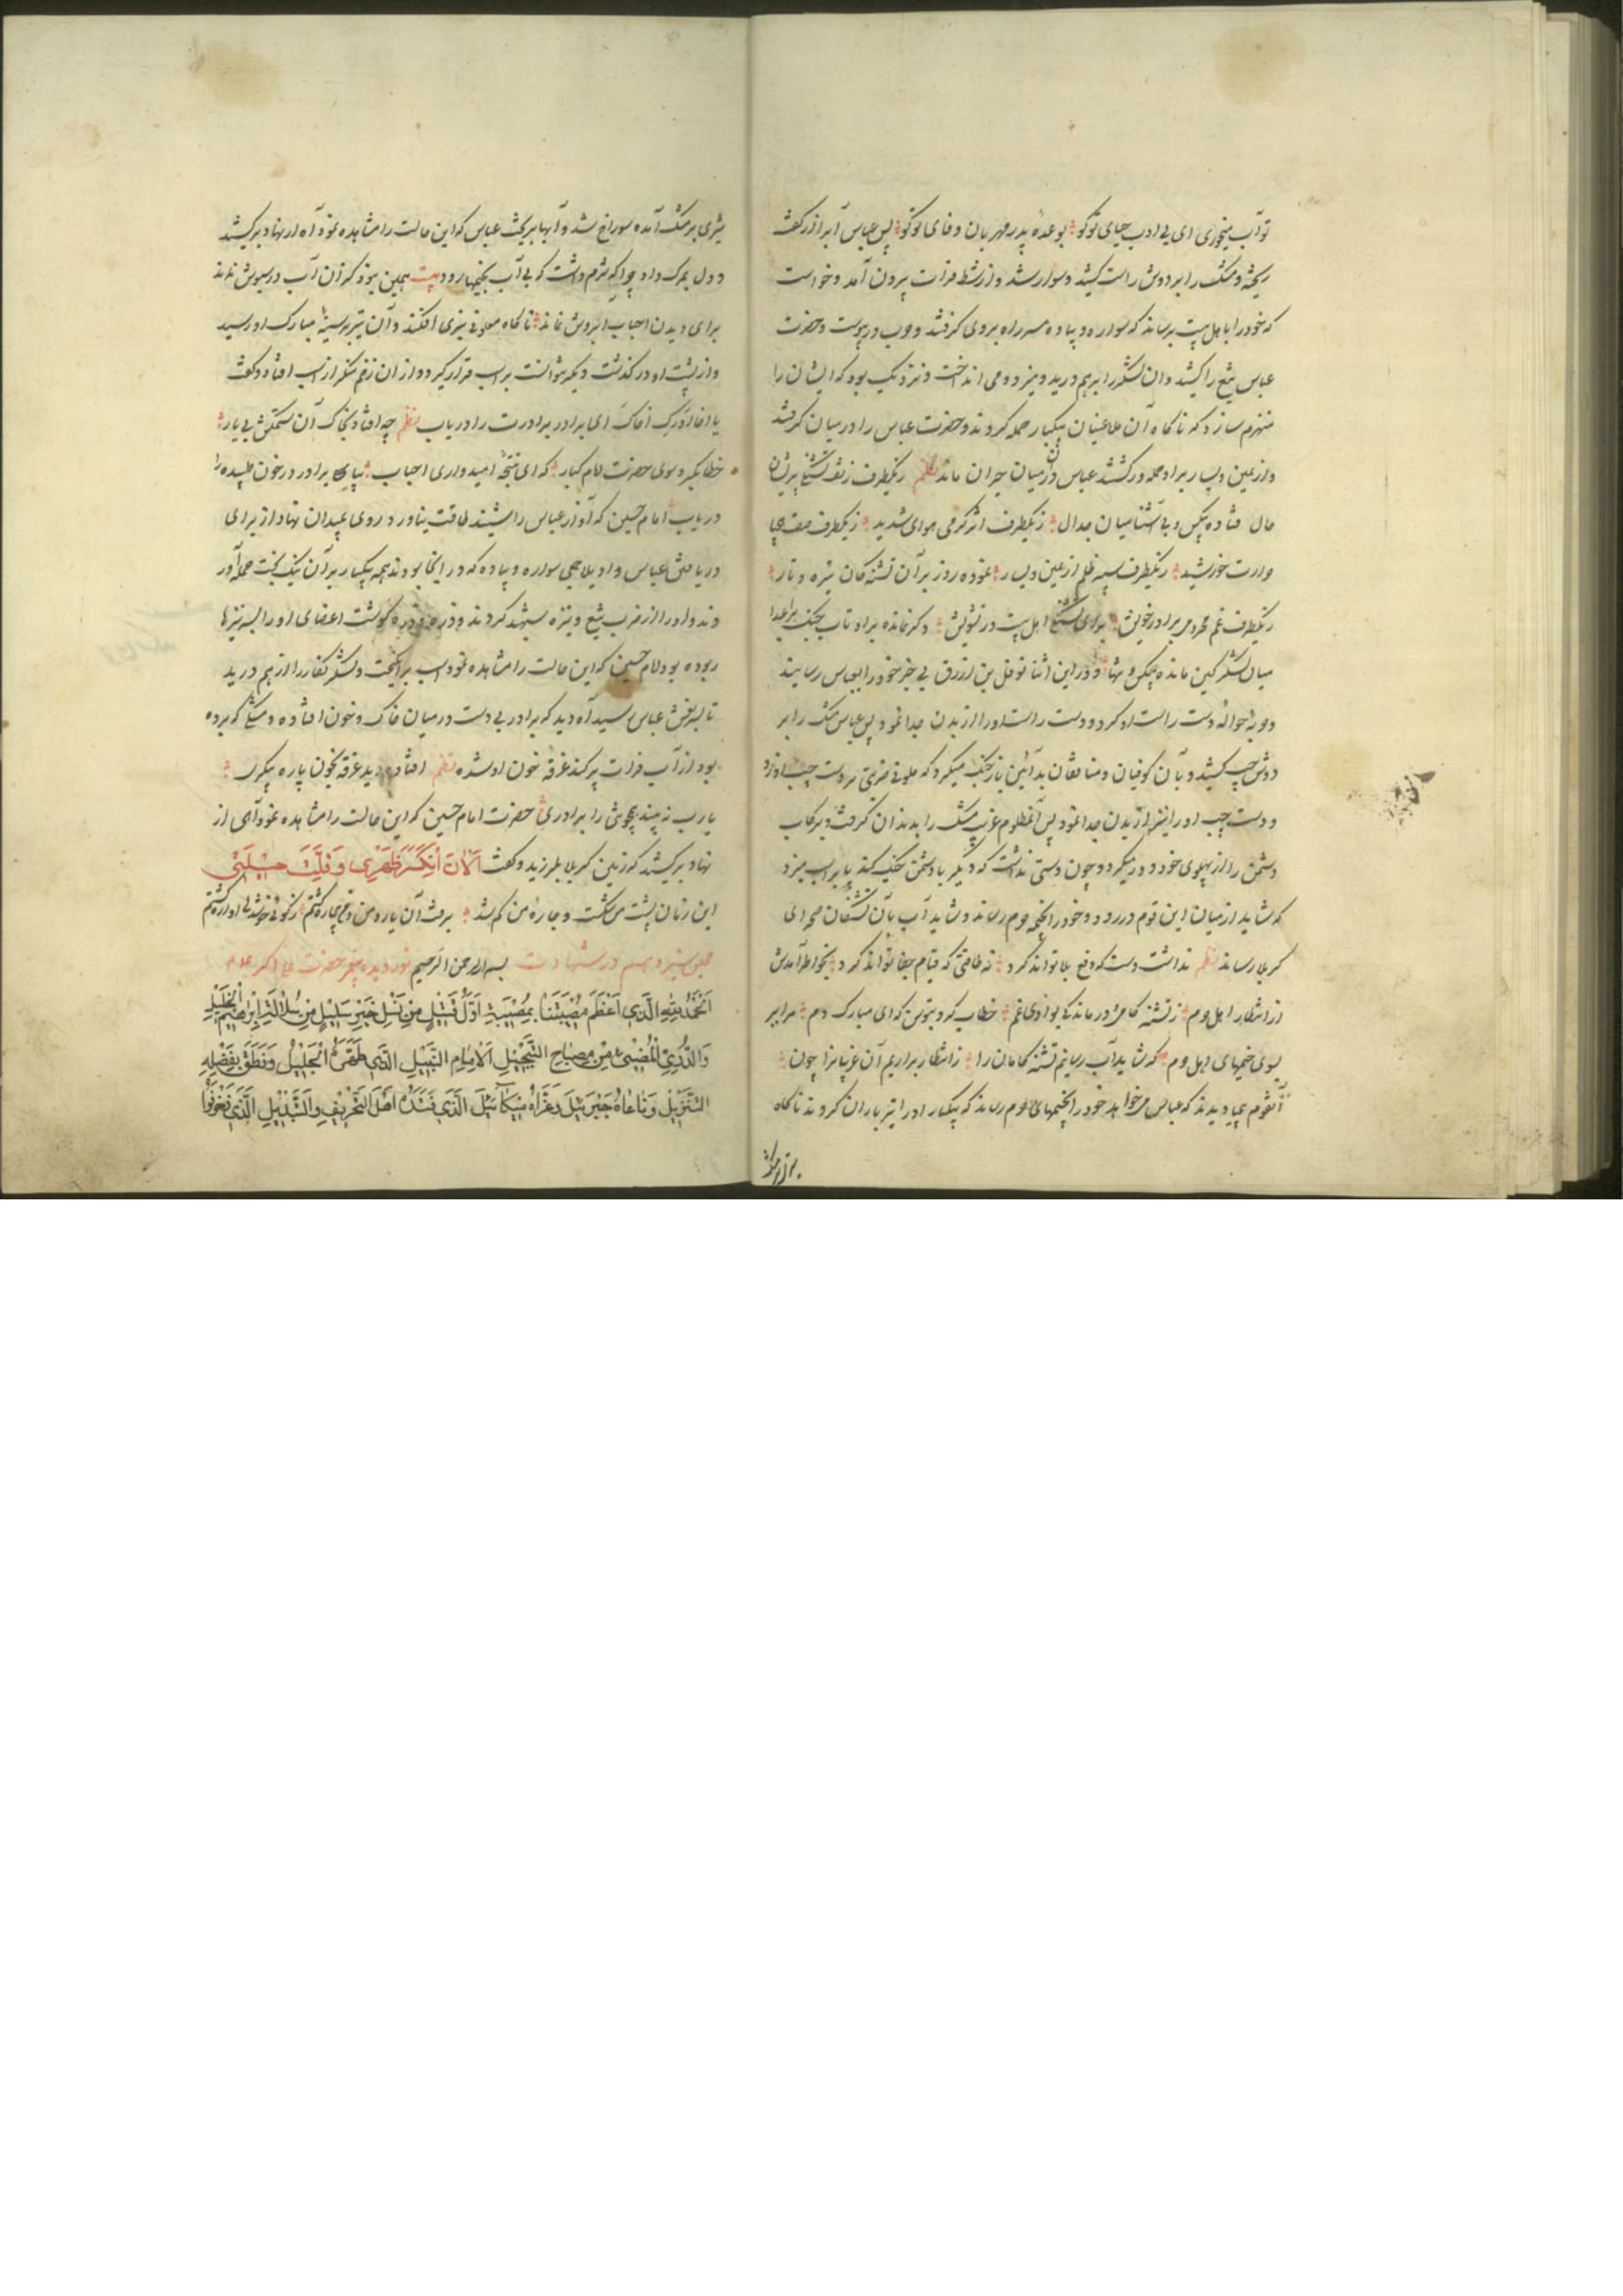 تو آب میخوری ای بی ادب حیای تو کو بوعدهٔ پدر مهربان وفای تو کو پس عباس آب را از کف
ریخته و مشک را بر دوش راست کشید و سوار شد و از شط فرات بیرون آمد و خواست
که خود را با هل بیت برساند که سواره و پیاده سر راه بروی گرفتند و حرب در پیوست و حضرت
عباس تیغ را کشید و آن لشکر را بر هم درید و میزد و می انداخت و نزدیک بود که ایشان را
منهزم سازد که ناکاه آن ملاعینان بیکبار حمله کردند و حضرت عباس را در میان گرفتند
و از یمین و یسار بر او حمله ور گشتند عباس در آن میان حیران ماند نظم زیکطرف
حال فتاده بیکس و بی آشنا میان جدال زیکطرف اثر گرمی هوای شدید زیکطرف
حرارت خورشید زیکطرف سپه ظلم از یمین و یسار نموده روز بر آن تشنه کان تیره و تار
زیکطرف غم محرومی برادر خویش برای تشنگی اهل بیت در تشویش دگر نمانده بر او تاب جنک بر اعدا
میان لشکر کین مانده بیکس و تنها و در این اثنا نوفل بن ازرق بی خبر خود را بعباس رسانید
و حربه حوالهٔ دست راست او کرد و دست راست او را از بدن جدا نمود پس عباس مشک را بر
دوش چپ کشید و با آن کوفیان و منافقان بد آئین باز جنک میکرد که ملعونی ضربتی بر دست چپ او زد
و دست چپ او را نیز از بدن جدا نمود پس آن مظلوم غریب مشک را بدندان گرفت و برکاب
دشمن را از پهلوی خود دور میکرد و چون دستی نداشت که دیگر با دشمن جنک کند پا بر اسب میزد
که شاید از میان این قوم در رود و خود را بخیمه حرم رساند و شاید آب بآن تشنگان صحرای
کربلا رساند نظم نداشت دست که دفع بلا تواند کرد نه طاقتی که قیام جفا تواند کرد بخواطر آمدش
از انتظار اهل حرم ز تشنه کامی و درماندکی بوادی غم خطاب کرد بتوسن که ای مبارک دم مرا ببر
بسوی خیمهای اهل حرم که شاید آب رسانیم تشنه کامان را ز انتظار بر آریم آن غریبانرا چون
آنقوم بیحیا دیدند که عباس میخواهد خود را بخیمهای حرم رساند که بیکبار او را تیرباران کردند ناکاه
تیری بر مشک آمده سوراخ شد و آبها بریخت عباس که این حالت را مشاهده نمود آه از نهاد برکشید
و دل بمرک داد چرا که شرم داشت که بی آب بخیمها رود بیت همین نبود کزان آب در سبویش نماند
برای دیدن احباب آبرویش نماند ناکاه ملعونی تیری افکند و آن تیر بر سینهٔ مبارک او رسید
و از پشت او در گذشت دیگر نتوانست بر اسب قرار گیرد و از آن زخم منکر از اسب افتاد و گفت
یا اخا ادرک اخاک ای برادر برادرت را دریاب نظم چه اوفتاد بخاک آن ستمکش بی یار
خطاب کرد بسوی حضرت امام کبار که ای نتیجهٔ امیدواری احباب بیا برادر در خون طپیده را
دریاب امام حسین که آواز عباس را شنید طاقت نیاورد روی بمیدان نهاد از برای
دریافتن عباس و اویلا جمعی سواره و پیاده که در آنجا بودند همه بیکبار بر آن نیک بخت حمله آور
دند و او را از ضرب تیغ و نیزه شهید کردند و ذره ذره گوشت اعضای او را بسر نیزها
ربوده بود امام حسین که این حالت را مشاهده نمود اسب برانگیخت و لشکر کفار را از هم درید
تا بسر نعش عباس رسید آه دید که برادر بی دست در میان خاک و خون افتاده و مشکی که برده
بود از آب فرات پر کند غرقه خون او شده نظم افتاده دید غرقه بخون پاره پیکرت
یارب نه بیند هیچکس را برادری حضرت امام حسین که این حالت را مشاهده نمود آهی از
نهاد برکشید که زمین کربلا بلرزید و گفت اَلآنَ اِنکَسَرَ ظَهْری وَ قَلَّتْ حیلَتی
این زمان پشت من شکست و چارهٔ من کم شد برفت آن یار و من در غم بیچاره گشتم
مجلس سیزدهم در شهادت بسم الله الرحمن الرحیم نور دیده پیغمبر حضرت علی اکبر علیه السلام
اَلْحَمْدُ لِلّهِ الَّذی اَعْظَمَ مُصیبَتَنا بِمُصیبَةِ اَوَّلِ قَتیلٍ مِنْ نَسْلِ خَیْرِ سَلیلٍ مِنْ سُلالَةِ اِبْراهیمَ الْخَلیلِ
وَالدُّرِیِّ الْمُضیئِ مِنْ مِصْباحِ التَّبْجیلِ اَلْاِمامِ النَّبیلِ الَّذی الْجَلیلُ وَنَطَقَ بِفَضْلِهِ
التَّنْزیلُ وَناغاهُ جَبْرَئیلُ وَعَزّاهُ میکائیلُ الَّذی اَهْلُ التَّحْریفِ وَالتَّبْدیلِ الَّذی